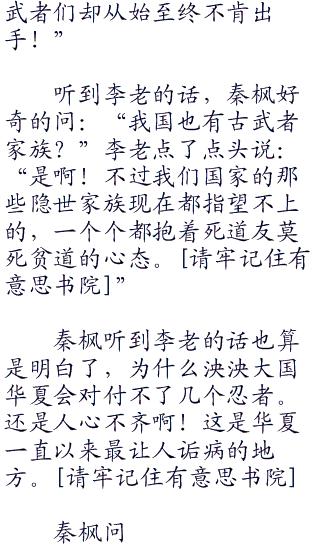 武者们却从始至终不肯出
手！”
听到李老的话，秦枫好
奇的问：“我国也有古武者
家族？”李老点了点头说：
“是啊！不过我们国家的那
些隐世家族现在都指望不上
的，一个个都抱着死道友莫
死贫道的心态。[请牢记住有
意思书院]”
秦枫听到李老的话也算
是明白了，为什么泱泱大国
华夏会对付不了几个忍者。
还是人心不齐啊！这是华夏
一直以来最让人诟病的地
方。[请牢记住有意思书院]
秦枫问